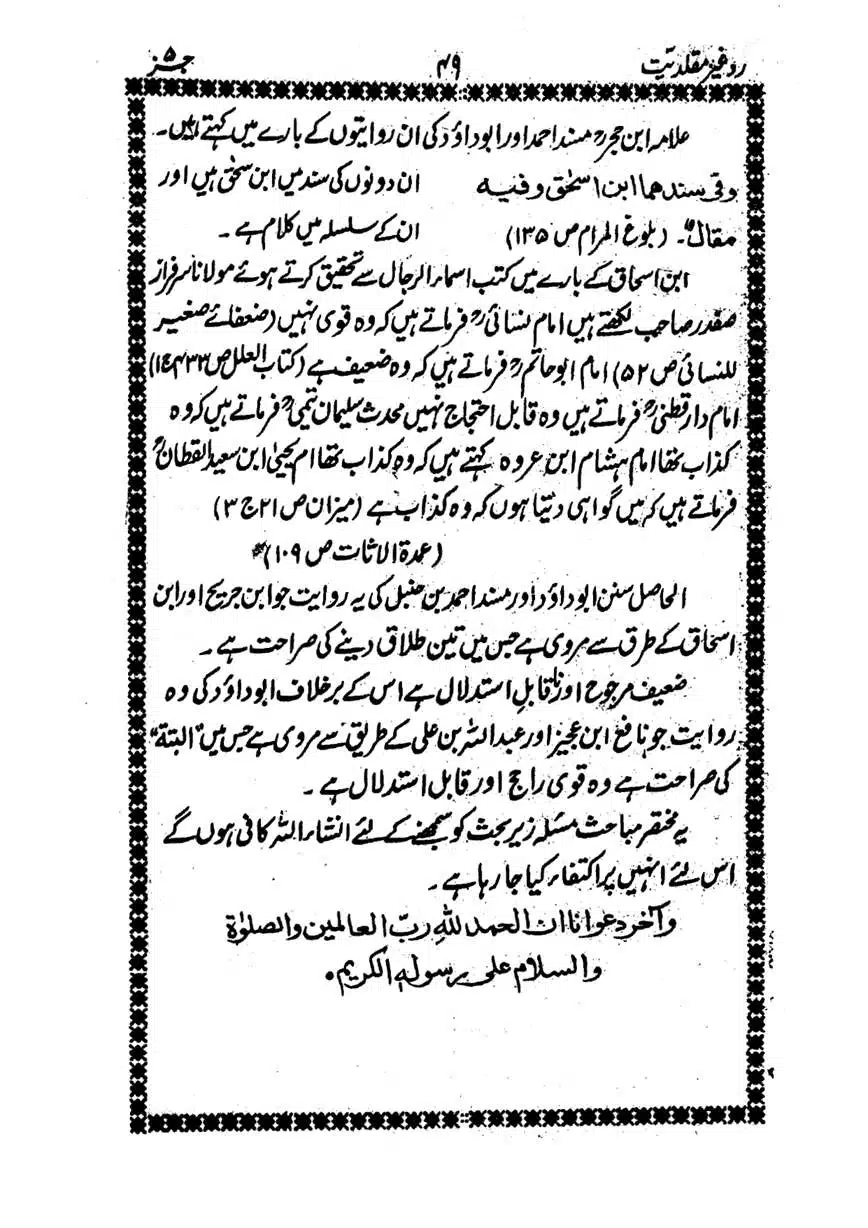 رد غیر مقلدیت ۴۹ جز ۵
علامہ ابن حجرؒ مسند احمد اور ابوداؤد کی ان روایتوں کے بارے میں کہتے ہیں۔
وفی سندھما ابن اسحٰق وفیہ ان دونوں کی سند میں ابن سحٰق ہیں اور
مقال۔ (بلوغ المرام ص ۱۳۵) ان کے سلسلہ میں کلام ہے۔
ابن اسحاق کے بارے میں کتب اسماء الرجال سے تحقیق کرتے ہوئے مولانا سرفراز
صفدر صاحب لکھتے ہیں امام نسائیؒ فرماتے ہیں کہ وہ قوی نہیں (ضعفائے صغیر
للنسائی ص ۵۲) امام ابوحاتمؒ فرماتے ہیں کہ وہ ضعیف ہے (کتاب العلل ص ۴۳۳ ج۱)
امام دارقطنیؒ فرماتے ہیں وہ قابل احتجاج نہیں محدث سلیمان تیمیؒ فرماتے ہیں کہ وہ
کذاب تھا امام ہشام ابن عروہ کہتے ہیں کہ وہ کذاب تھا امام یحییٰ ابن سعید القطانؒ
فرماتے ہیں کہ میں گواہی دیتا ہوں کہ وہ کذاب ہے (میزان ص ۲۱ ج ۳)
(عمدۃ الاثات ص ۱۰۹)
الحاصل سنن ابوداؤد اور مسند احمد بن حنبل کی یہ روایت جو ابن جریج اور ابن
اسحاق کے طرق سے مروی ہے جس میں تین طلاق دینے کی صراحت ہے۔
ضعیف مرجوح اور ناقابل استدلال ہے اس کے برخلاف ابوداؤد کی وہ
روایت جو نافع ابن عجیز اور عبداللہ بن علی کے طریق سے مروی ہے جس میں "البتۃ"
کی صراحت ہے وہ قوی راجح اور قابل استدلال ہے۔
یہ مختصر مباحث مسئلہ زیر بحث کو سمجھنے کے لئے انشاء اللہ کافی ہوں گے
اس لئے انہیں پر اکتفاء کیا جا رہا ہے۔
وآخر دعوانا ان الحمد للہ ربّ العالمین والصلوٰۃ
والسلام علی رسولہ الکریم۔